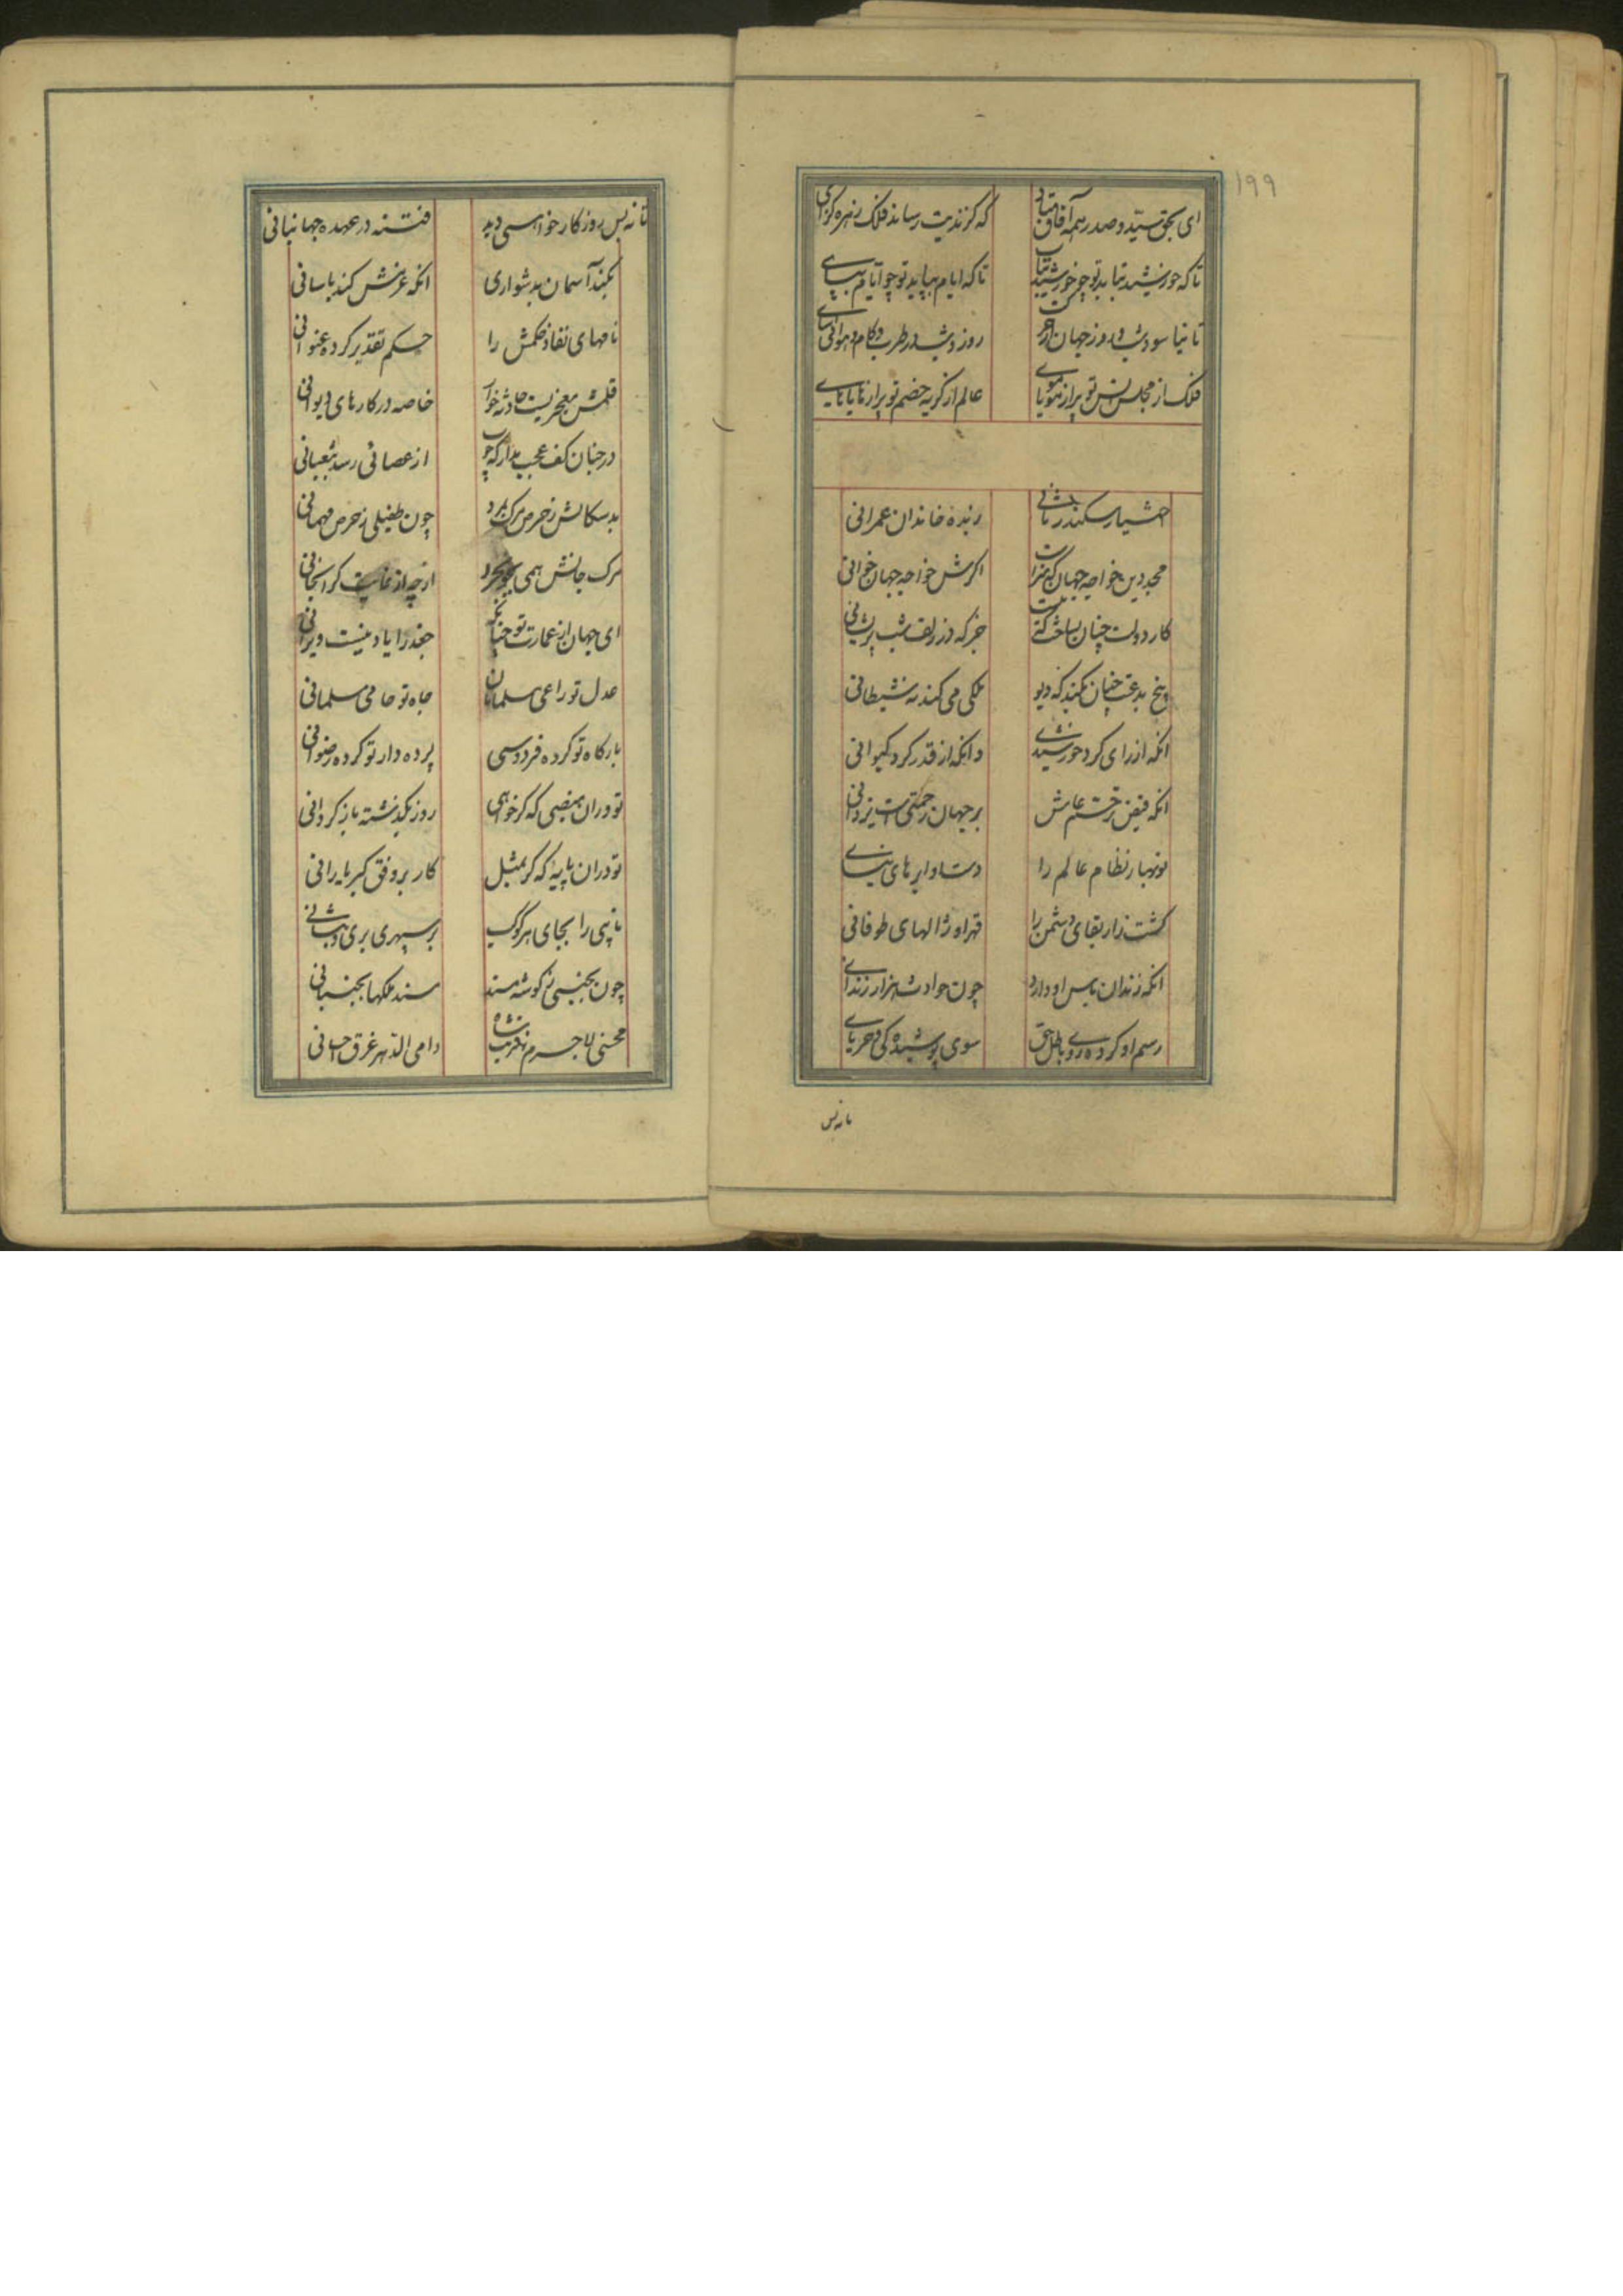 ۱۹۹
ای بحق سید و صدر همه آفاق بتابی که کزندیت رساند فلک زهره کزای
تا که خورشید بتابد تو چو خورشید بتاب تا که ایام بپاید تو چو ایام بپای
تا نیاساید شب و روز جهان از حرکت روز و شب در طرب و کام و هوا می‌آسای
فلک از مجلس انس تو پر از هویاهوی عالم از کریه خصم تو پر از هایاهای
اختیار سکندر ثانی زبده خاندان عمرانی
مجد دین خواجه جهان که سزاست اکرش خواجه جهان خوانی
کار دولت چنان بساخت که نیست جز که در زلف شب پریشانی
بیخ بدعت چنان بکند که دیو ملکی می کند نه شیطانی
انکه از رای کرد خورشیدی وانکه از قدر کرد کیوانی
انکه فیض ترحم عامش بر جهان رحمتی است یزدانی
نوبهار نظام عالم را دست او ابرهای نیسانی
کشت زار بقای دشمن را قهر او ژالهای طوفانی
انکه زندان باس او دارد چون حوادث هزار زندانی
رسم او کرده روی باطل و حق سوی پوشیدگی و عریانی
تا نه بس
تا نه بس روزکار خواهی دید فتنه در عهده جهانبانی
بکند آسمان بدشواری انکه عزمش کند باسانی
نامهای نفاذ حکمش را حکم تقدیر کرده عنوانی
قلمش معجزیست حادثه خوار خاصه در کارهای دیوانی
در چنان کف عجب مدار که چوب از عصائی رسد بثعبانی
بدسکالش ز حرص مرک بمرد چون طفیلی ز حرص مهمانی
مرک جانش همی بجو نخرد ارچه از غایت کرانجانی
ای جهان از عمارت تو چنانکه جغد را یاد نیست ویرانی
عدل تو راعی مسلمانان جاه تو حامی مسلمانی
بارکاه تو کرده فردوسی پرده دار تو کرده رضوانی
تو در ان منصبی که کر خواهی روز بکذشته باز کردانی
تو در ان پایهٔ که کر بمثل کار بر وفق کبریا رانی
نایبی را بجای هر کوکب بر سپهری بری و بنشانی
چون بجنبی ز کوشه مسند مسند ملکها بجنبانی
محسنی لاجرم ز قربت شاه دامی الدهر غرق احسانی